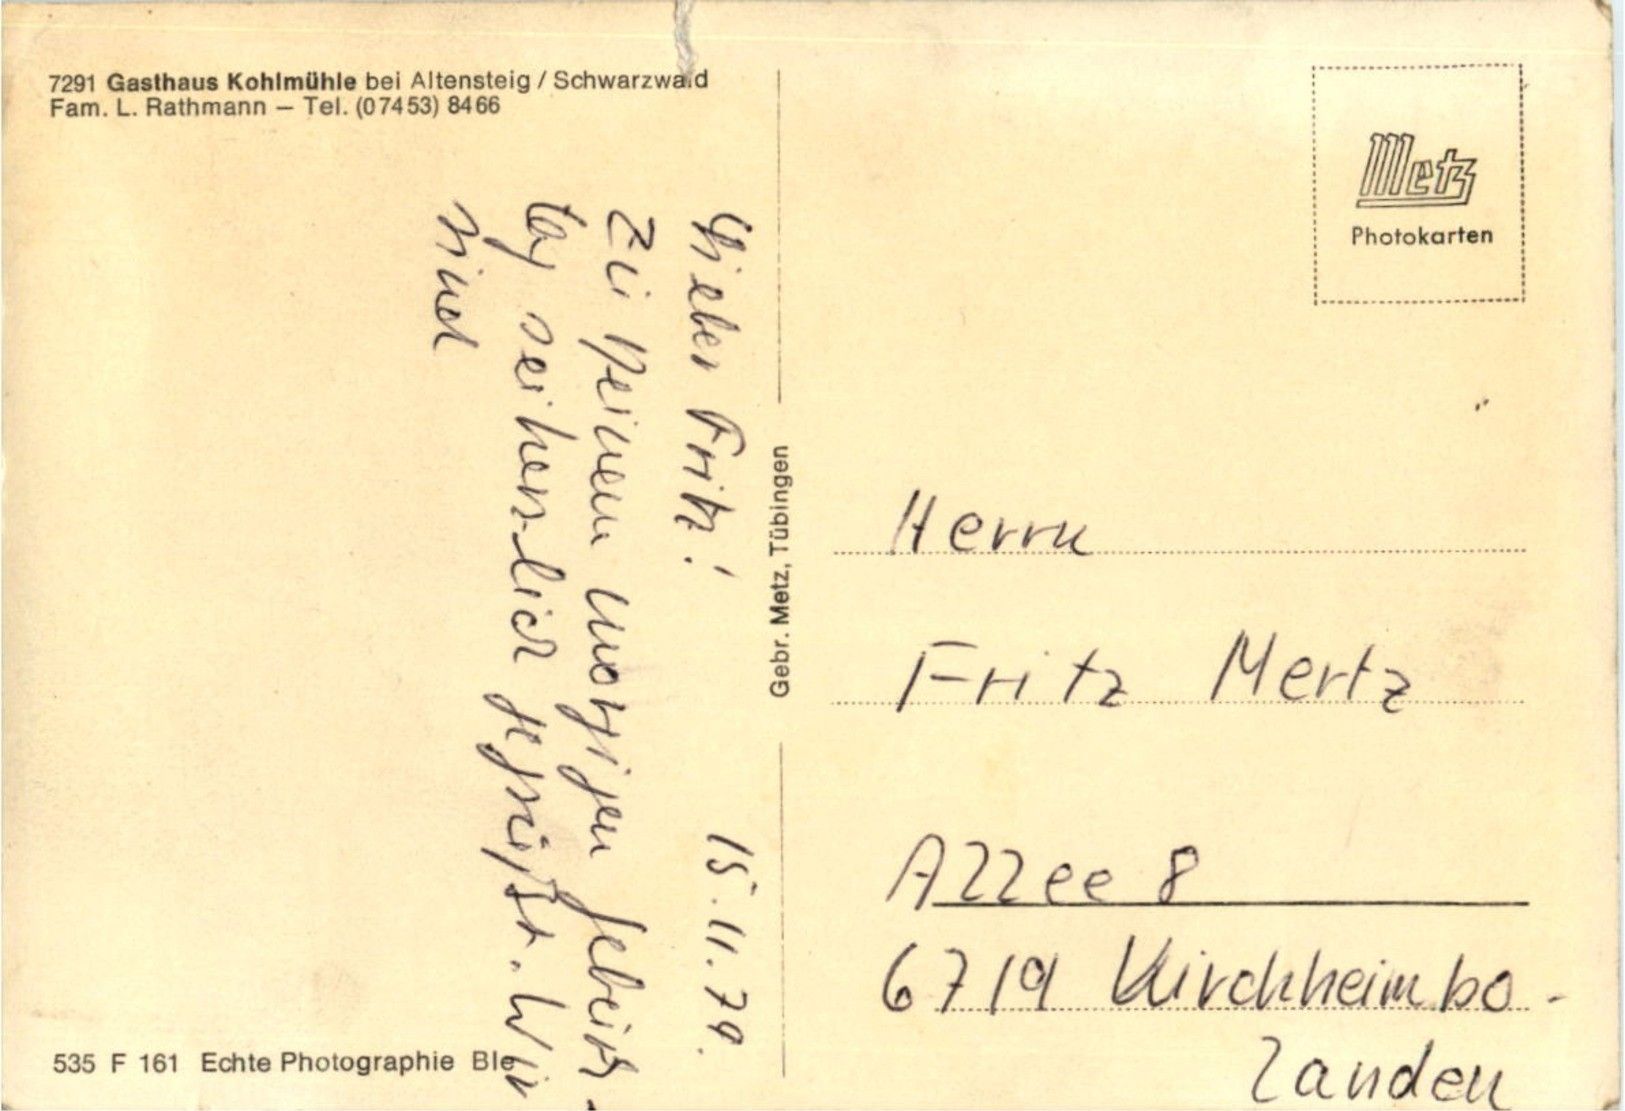 7291 Gasthaus Kohlmühle bei Altensteig / Schwarzwald
Fam. L. Rathmann — Tel. (07453) 8466
15.11.79.
Lieber Fritz!
Zu Deinem morgigen Geburts-
tag sei herz-lich gegrüßt. Wir
sind
535 F 161 Echte Photographie Ble
Gebr. Metz, Tübingen
Metz
Photokarten
Herrn
Fritz Mertz
Allee 8
6719 Kirchheimbo-
landen